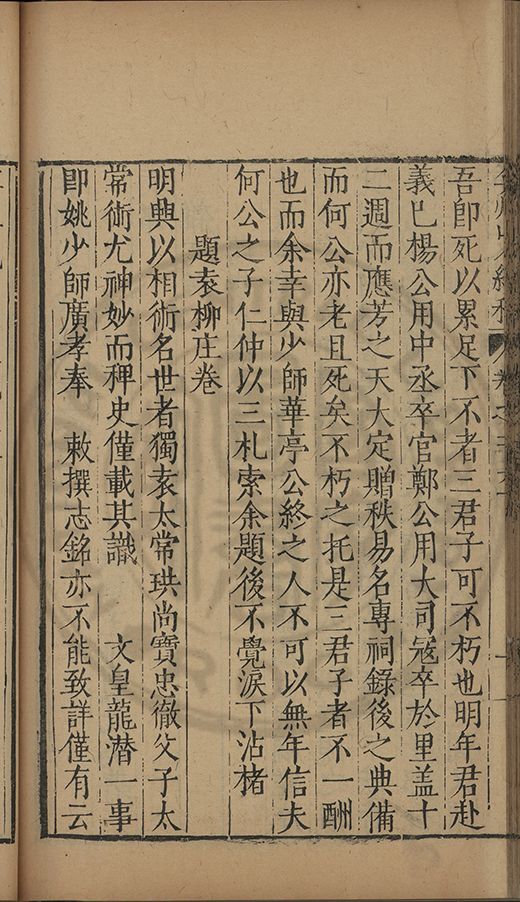 吾卽死以累足下不者三君子可不朽也明年君赴
義已楊公用中丞卒官鄭公用大司冦卒於里盖十
二週而應芳之天大定贈秩易名專祠錄後之典備
而何公亦老且死矣不朽之托是三君子者不一酬
也而余幸與少師華亭公終之人不可以無年信夫
何公之子仁仲以三札索余題後不覺淚下沾楮
題袁柳庄卷
明興以相術名世者獨袁太常珙尚寶忠徹父子太
常術尤神妙而稗史僅載其識 文皇龍潜一事
卽姚少師廣孝奉 敕撰志銘亦不能致詳僅有云